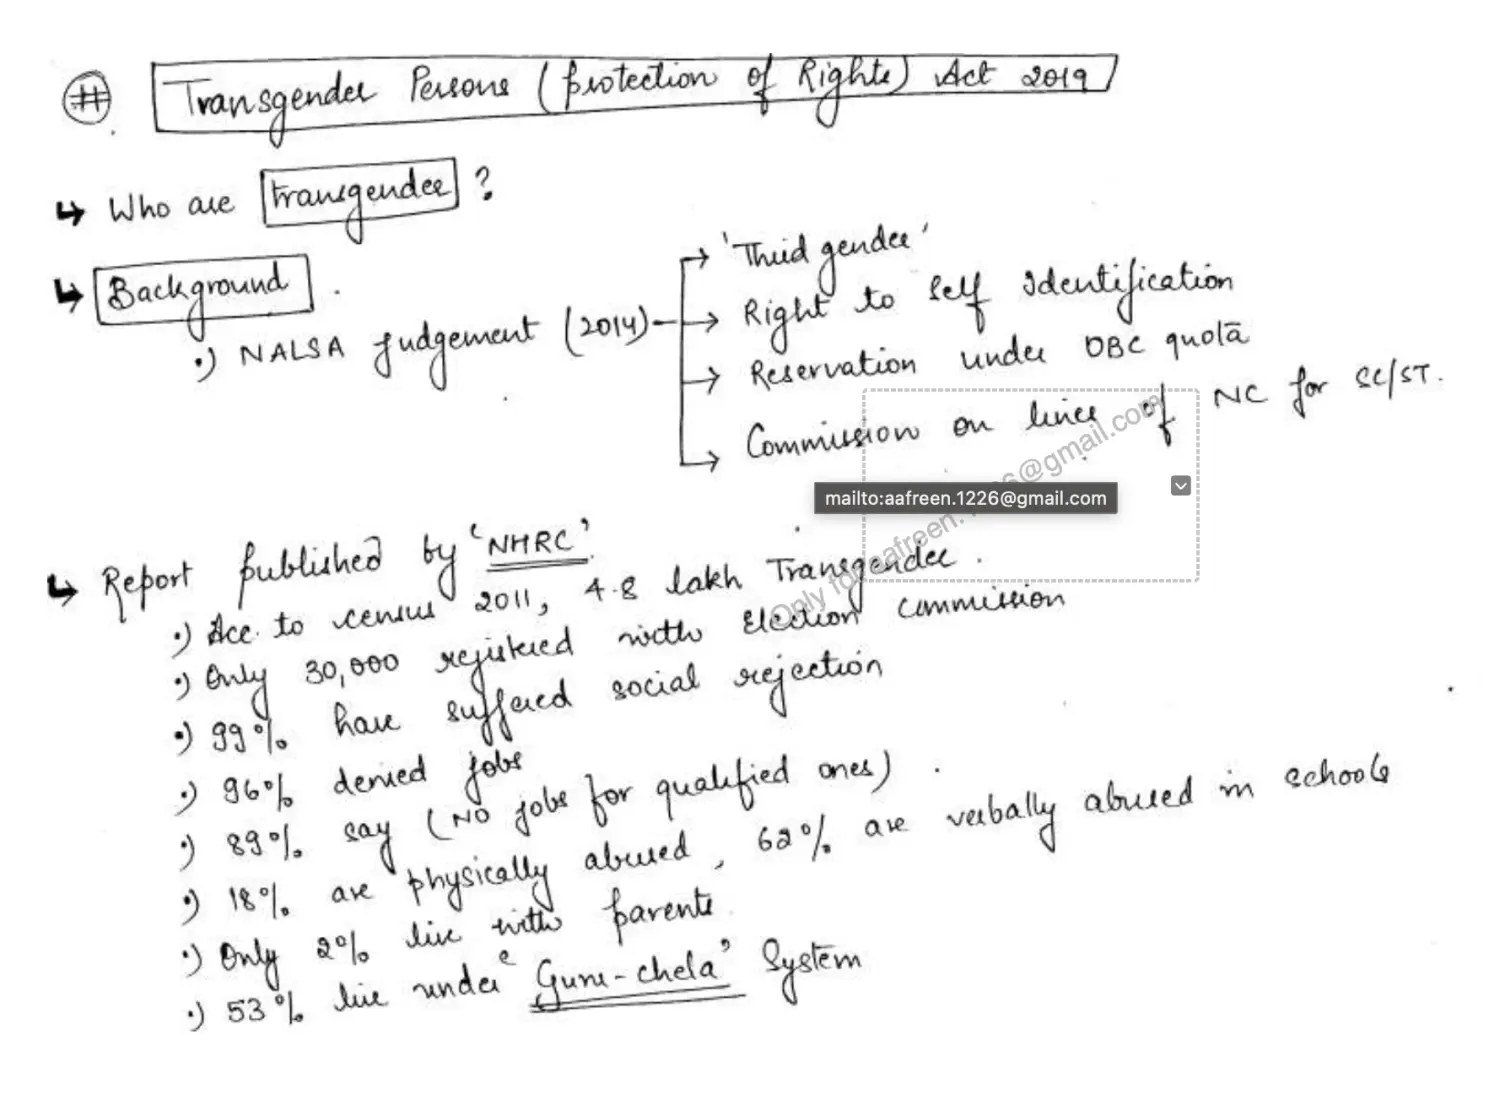 # Transgender Persons (Protection of Rights) Act 2019
↳ Who are transgender ?
↳ Background
•) NALSA Judgement (2014)
→ 'Third gender'
→ Right to Self Identification
→ Reservation under OBC quota
→ Commission on lines of NC for SC/ST.
mailto:aafreen.1226@gmail.com
Only for aafreen.1226@gmail.com
↳ Report published by 'NHRC'
•) Acc. to census 2011, 4.8 lakh Transgender.
•) Only 30,000 registered with Election commission
•) 99% have suffered social rejection
•) 96% denied jobs
•) 89% say (NO jobs for qualified ones)
•) 18% are physically abused, 62% are verbally abused in schools
•) Only 2% live with parents
•) 53% live under 'Guru-chela' System